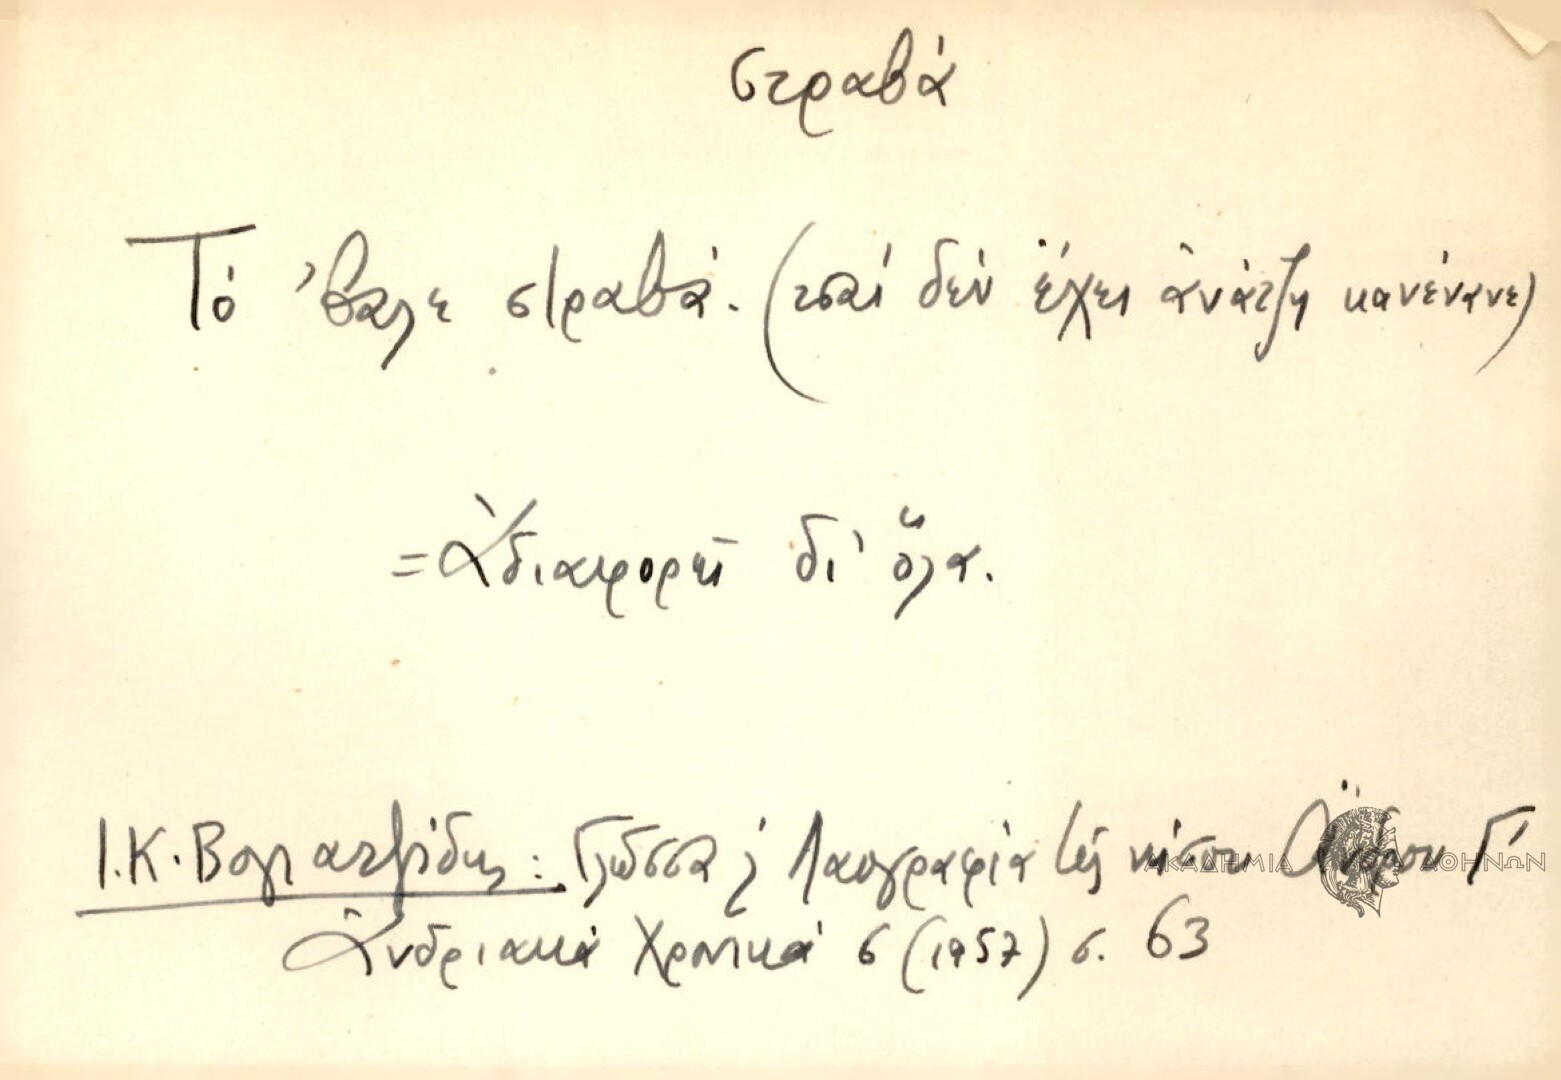 στραβά
Τό 'βαλε στραβά. (τσαί δέν ἔχει ἀνάτζη κανένανε)
= Ἀδιαφορεῖ δι' ὅλα.
Ι. Κ. Βογιατζίδης: Γλῶσσα κ' Λαογραφία τῆς νήσου Ἄνδρου Γ'
ΑΚΑΔΗΜΙΑ ΑΘΗΝΩΝ
Ἀνδριακά Χρονικά 6 (1957) σ. 63